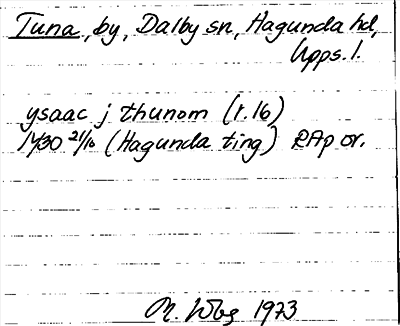 Tuna, by, Dalby sn, Hagunda hd,
Upps. l.
ysaac j thunom (r. 16)
1430 21/10 (Hagunda ting) RAp or.
1973